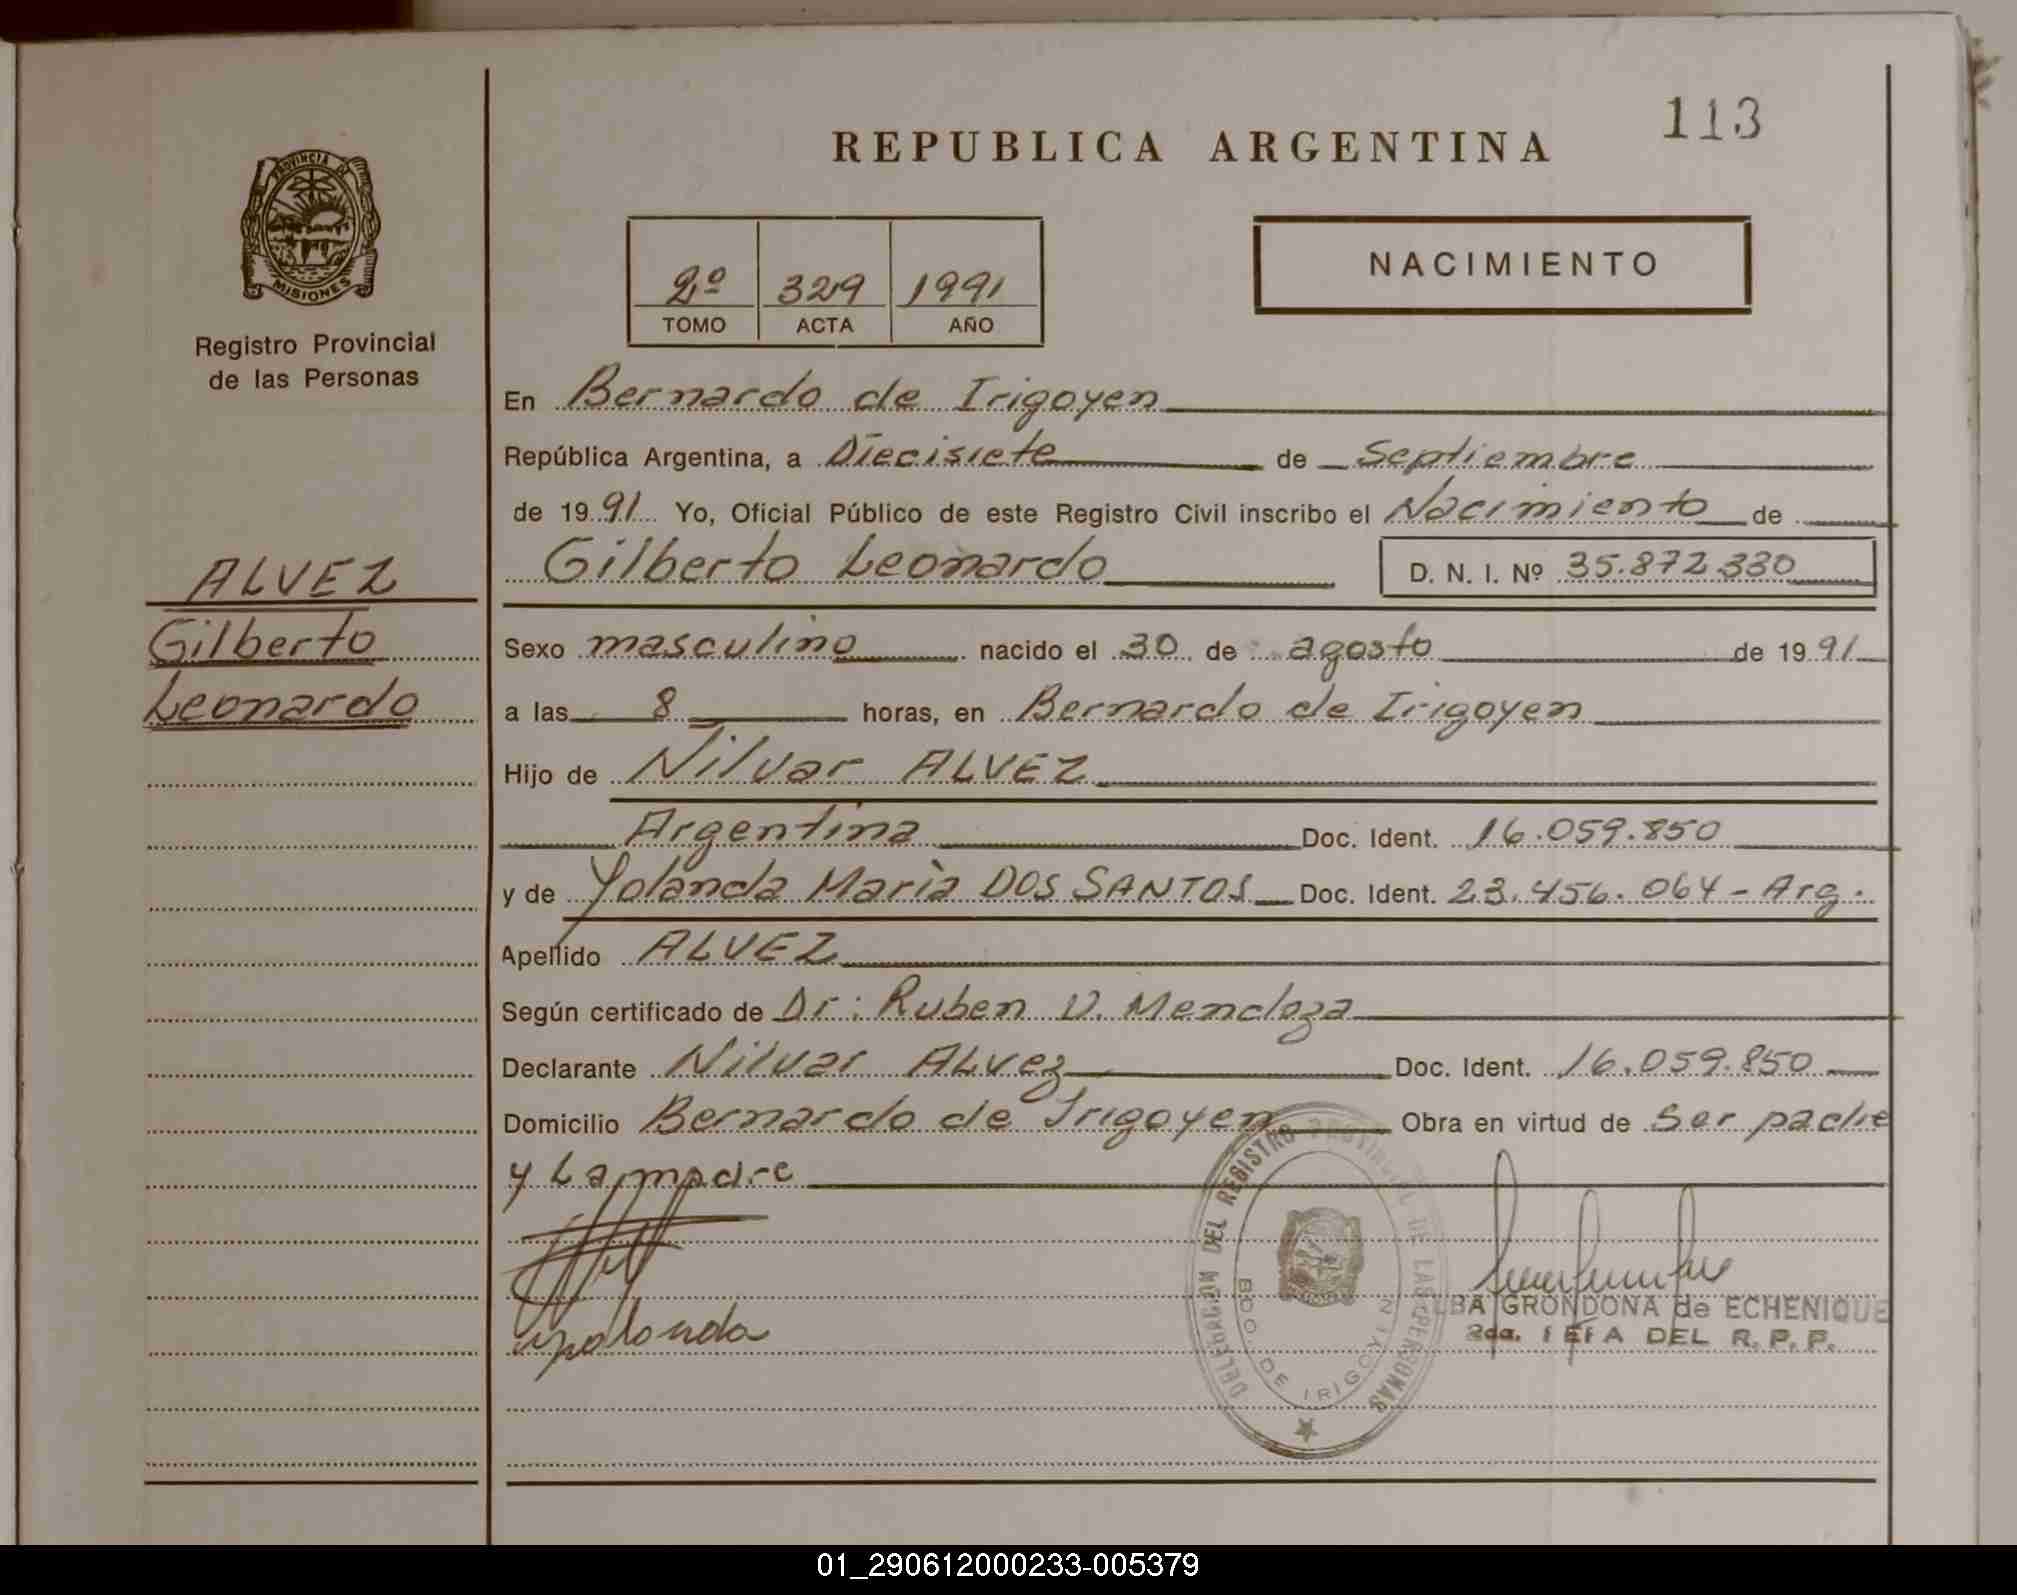 113
REPUBLICA ARGENTINA
PROVINCIA DE
MISIONES
Registro Provincial
de las Personas
NACIMIENTO
2º 329 1991
TOMO ACTA AÑO
En Bernardo de Irigoyen
República Argentina, a Diecisiete de Septiembre
de 1991 Yo, Oficial Público de este Registro Civil inscribo el Nacimiento de
Gilberto Leonardo D. N. I. Nº 35.872.330
ALVEZ
Gilberto
Leonardo
Sexo masculino nacido el 30 de agosto de 1991
a las 8 horas, en Bernardo de Irigoyen
Hijo de Nilvar ALVEZ
Argentina Doc. Ident. 16.059.850
y de Yolanda Marìa DOS SANTOS Doc. Ident. 23.456.064 - Arg.
Apellido ALVEZ
Según certificado de Dr: Ruben D. Mendoza
Declarante Nilvar ALVEZ Doc. Ident. 16.059.850
Domicilio Bernardo de Irigoyen Obra en virtud de Ser padre
y La madre
yolanda
DELEGACION DEL REGISTRO PROVINCIAL DE LAS PERSONAS
BDO. DE IRIGOYEN
LBA GRONDONA de ECHENIQUE
2da. JEFA DEL R. P. P.
01_290612000233-005379